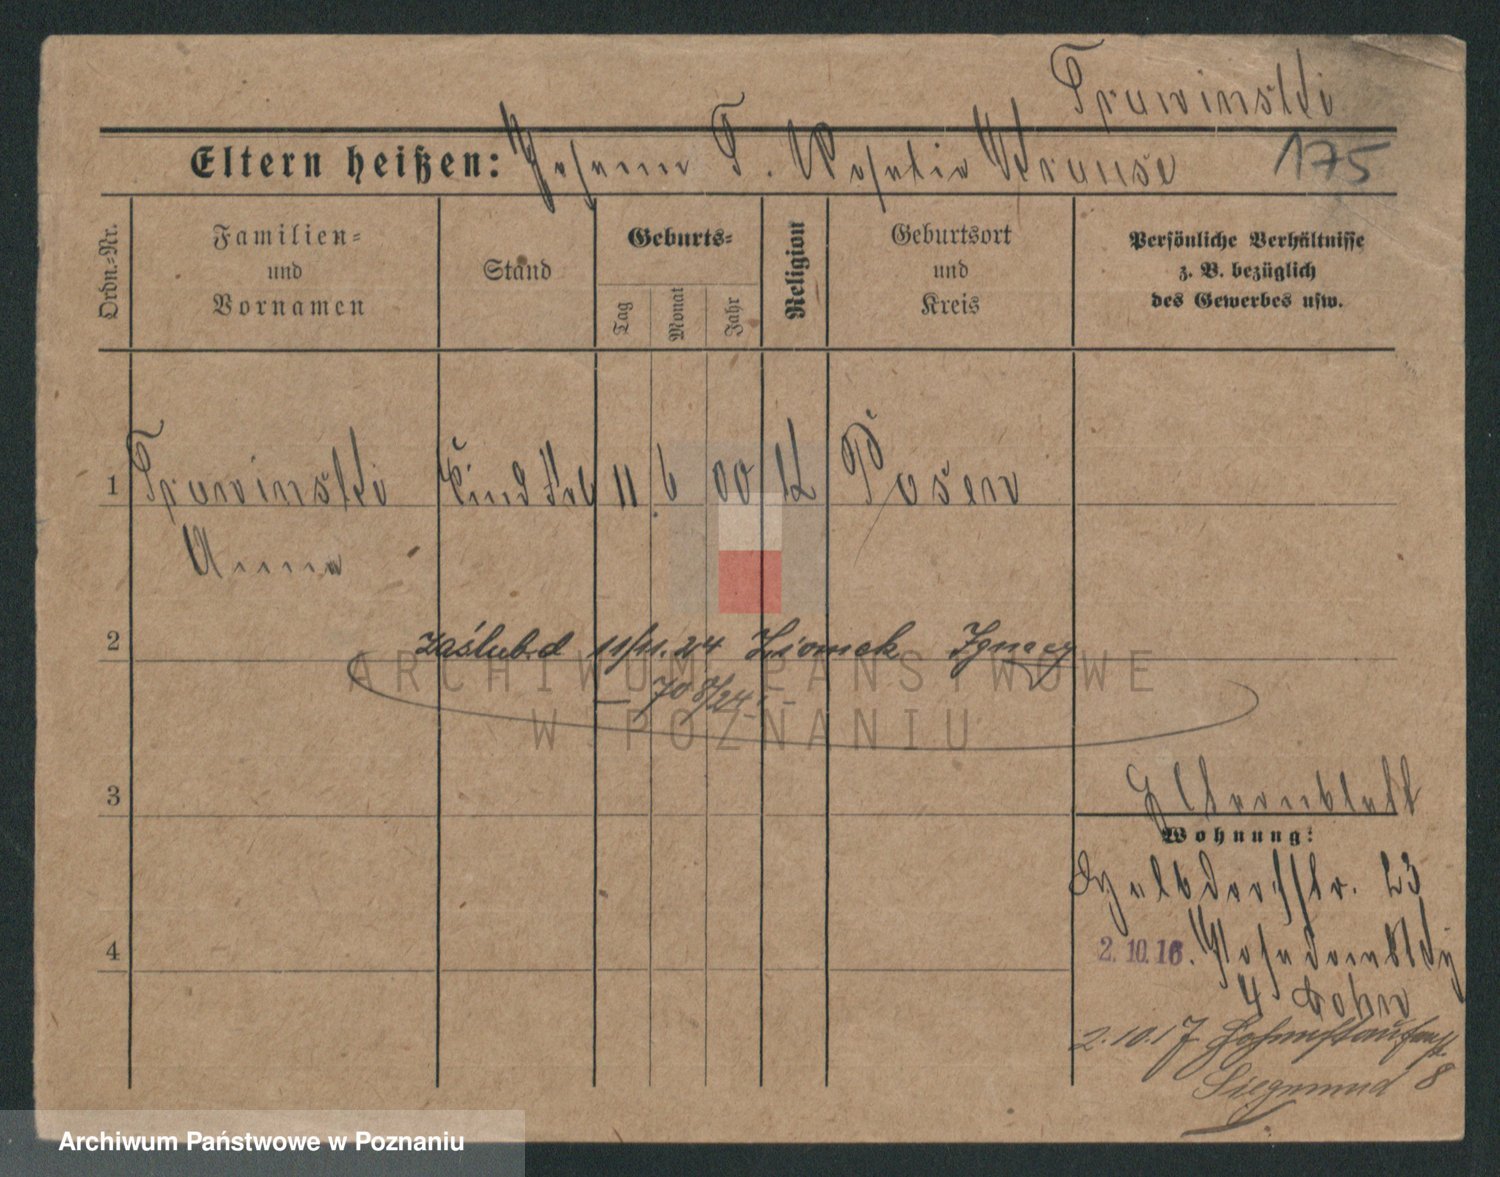 Truwinski
Eltern heißen: Johann T. Rosalie Krause 175
Ordn.-Nr.
Familien=
und
Vornamen
Stand
Geburts=
Tag
Monat
Jahr
Religion
Geburtsort
und
Kreis
Persönliche Verhältnisse
z. B. bezüglich
des Gewerbes usw.
1 Truwinski 11 6 00 K Posen
Anna
2 zaślub. d 11/11. 24 Ignacy
— 70 8/24 —
3
Elternblatt
Wohnung:
23
4
2. 10. 16.
4
2.10.17 Hohenstaufenstr. 8
Siegmund
ARCHIWUM PAŃSTWOWE
W POZNANIU
Archiwum Państwowe w Poznaniu